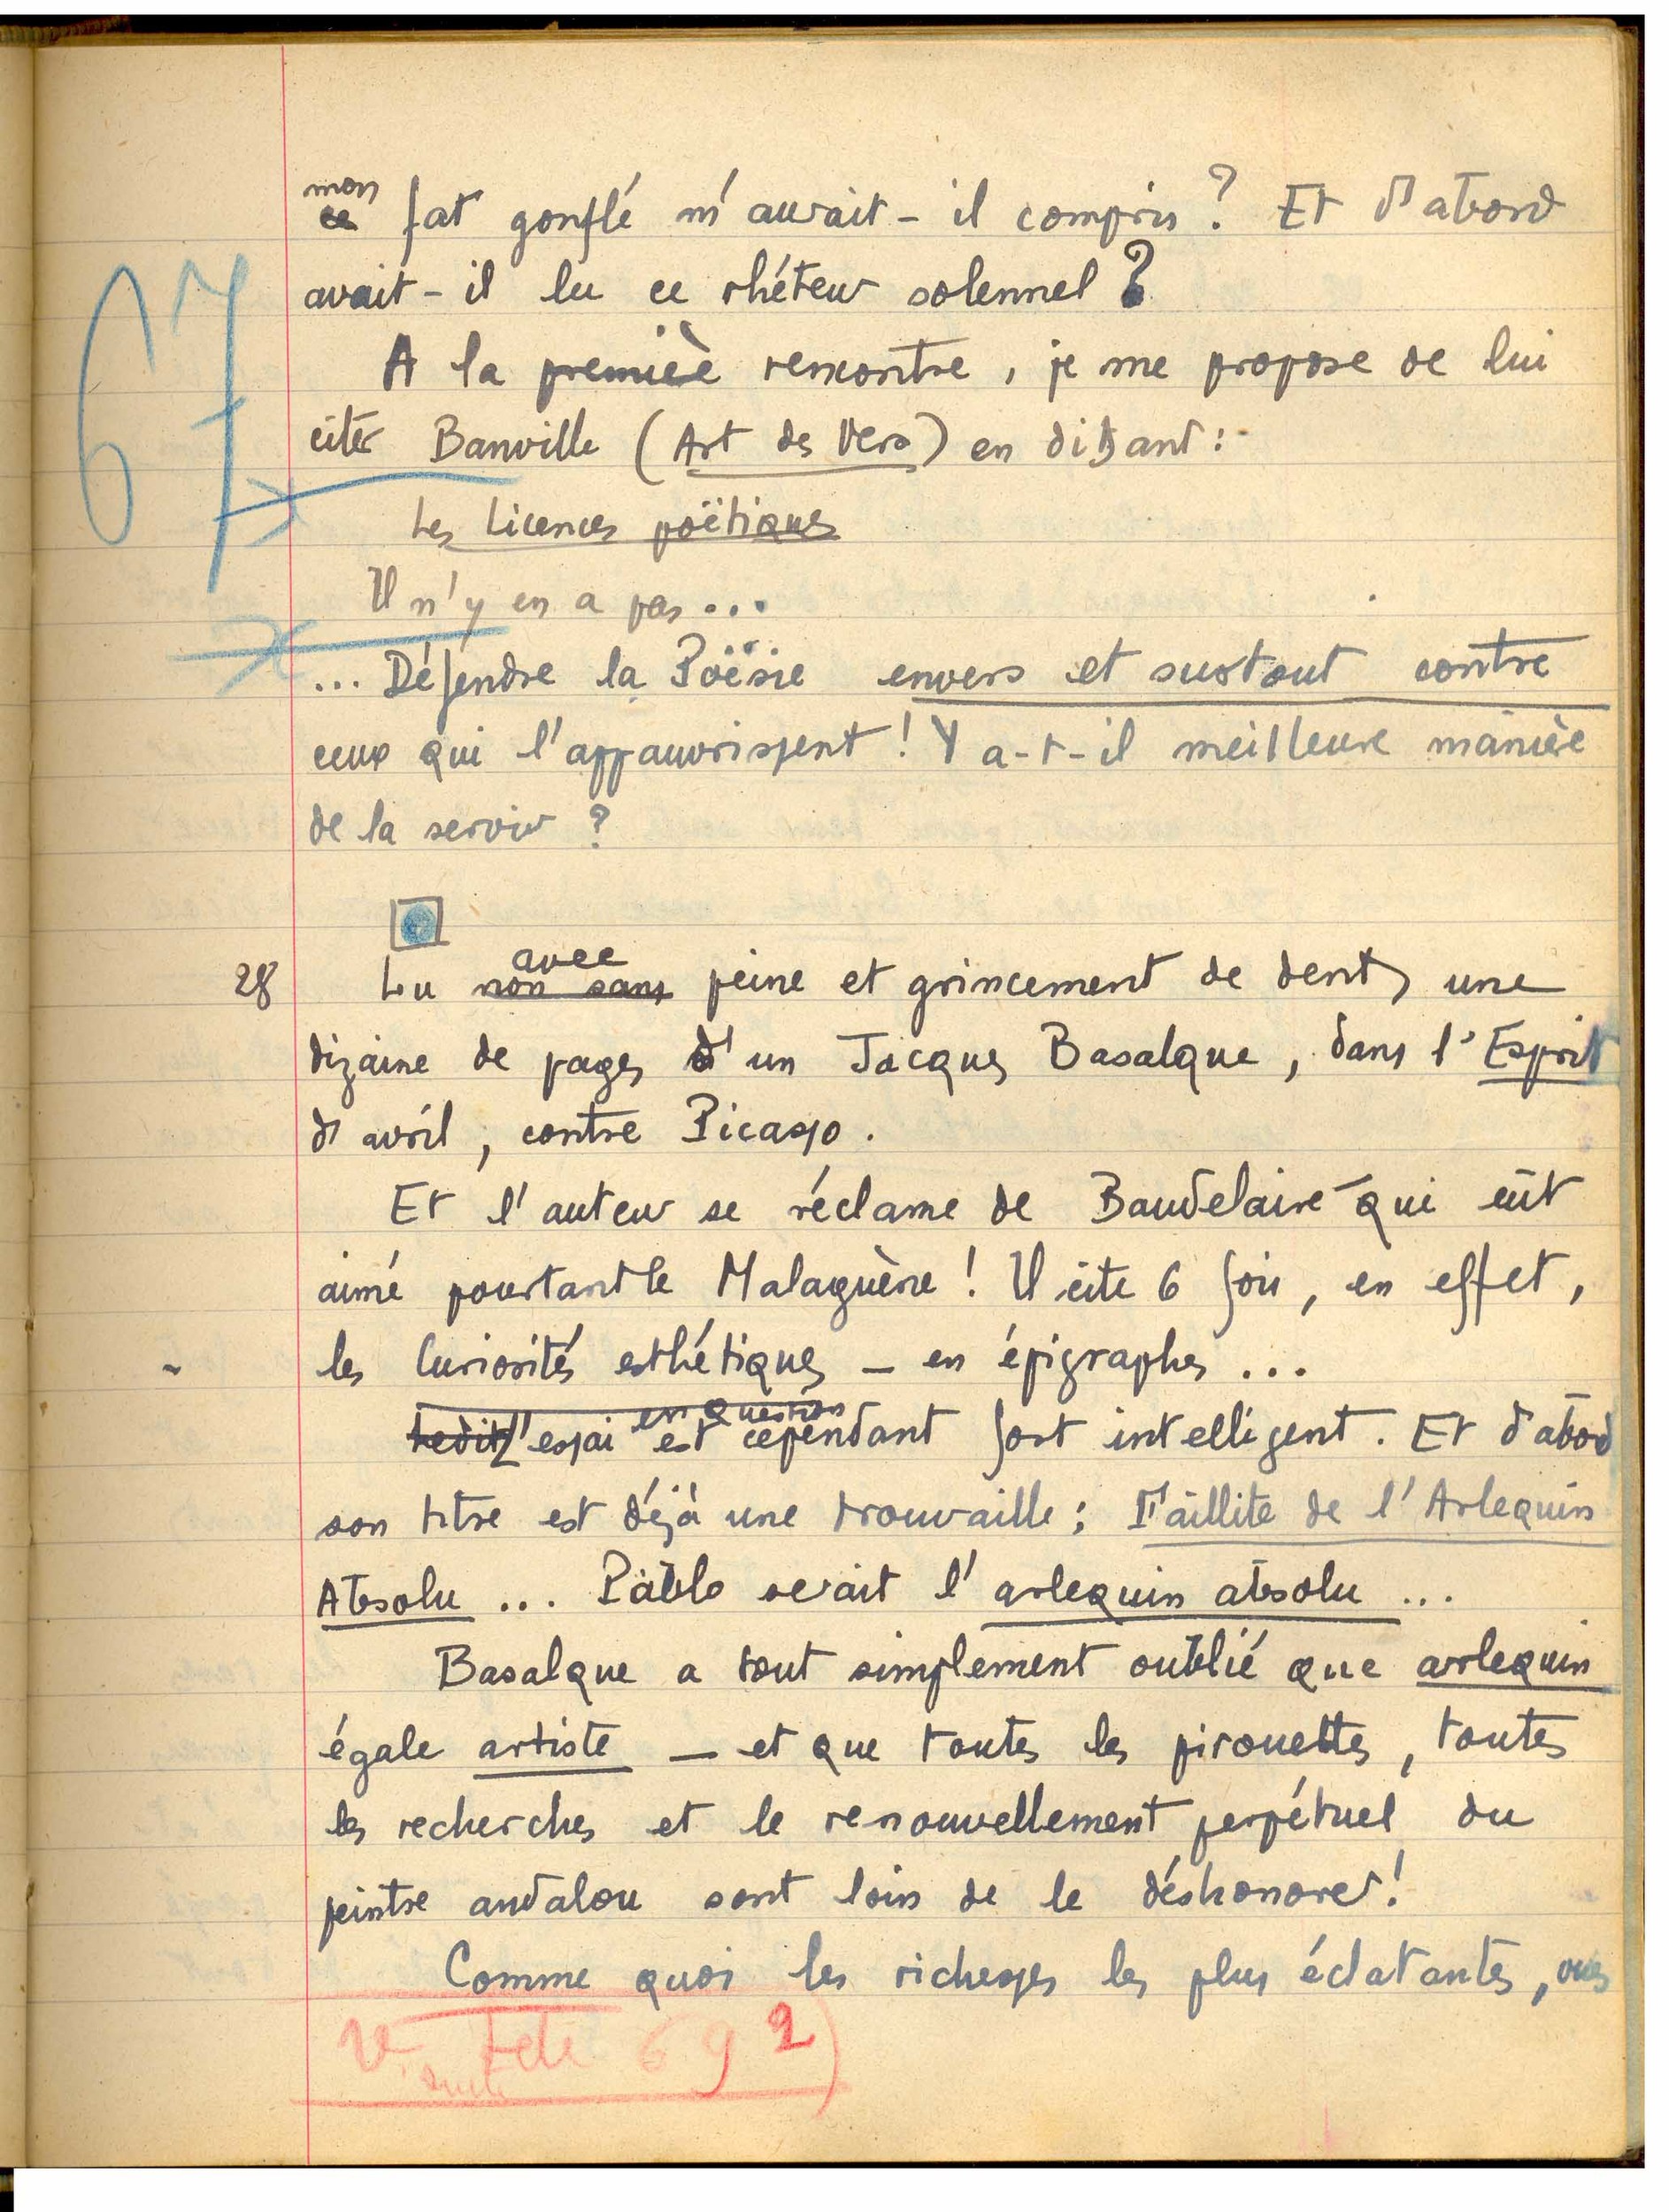 mon
ce fat gonflé m'aurait-il compris ? Et d'abord
avait-il lu ce rhéteur solennel ?
A la première rencontre, je me propose de lui
citer Banville (Art des Vers) en disant :
Les Licences poëtiques
Il n'y en a pas...
... Défendre la Poësie envers et surtout contre
ceux qui l'appauvrissent ! Y a-t-il meilleure manière
de la servir ?
67
avec
28 Lu non sans peine et grincement de dents, une
dizaine de pages d'un Jacques Basalque, dans l'Esprit
d'avril, contre Picasso.
Et l'auteur se réclame de Baudelaire qui eût
aimé pourtant le Malaguène ! Il cite 6 fois, en effet,
les Curiosités esthétiques – en épigraphes ...
en question
Ledit L'essai est cependant fort intelligent. Et d'abord
son titre est déjà une trouvaille : Faillite de l'Arlequin
Absolu ... Pablo serait l'arlequin absolu ...
Basalque a tout simplement oublié que arlequin
égale artiste – et que toutes les pirouettes, toutes
les recherches et le renouvellement perpétuel du
peintre andalou sont loin de le déshonorer !
Comme quoi les richesses les plus éclatantes, vues
V. 69 2)
suite